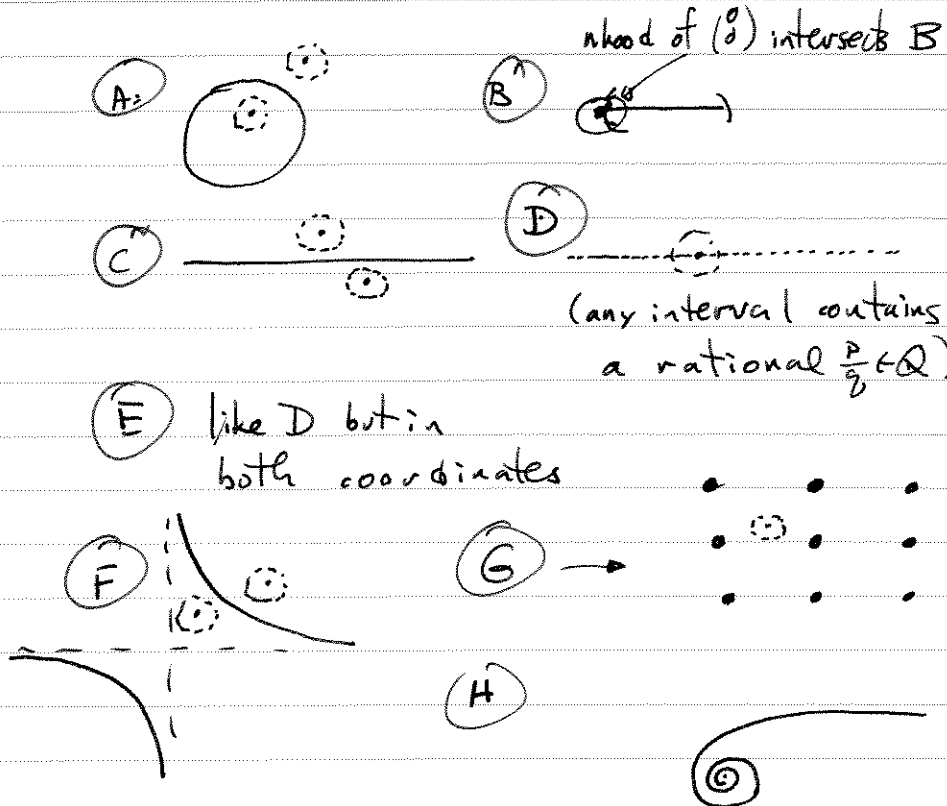 nhood of (0 0) intersects B
A:
B
C
D
(any interval contains
a rational p/q ∈ Q)
E like D but in
both coordinates
F
G →
H